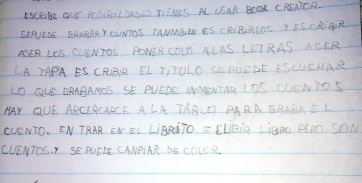 ESCRIBE QUE POSIBILIDADES TIENES AL USAR BOOK CREATOR.
SEPUEDE GRABAR Y CUNTOS TANMBIEN ES CRIBIRLOS Y ESCRIBIR
ASER LOS CUENTOS PONER COLO A LAS LETRAS ACER
LA TAPA ES CRIBIR EL TITULO SE PUEDE ESCUCHAR
LO QUE GRABAMOS SE PUEDE INMENTAR LOS CUENTOS
HAY QUE ARCERCARCE A LA TABLET PARA GRABA El
CUENTO. EN TRAR EN EL LIBRITO = ELIGIR LIBRO PERO SON
CUENTOS. Y SE PUEDE CANPIAR DE COLOR.